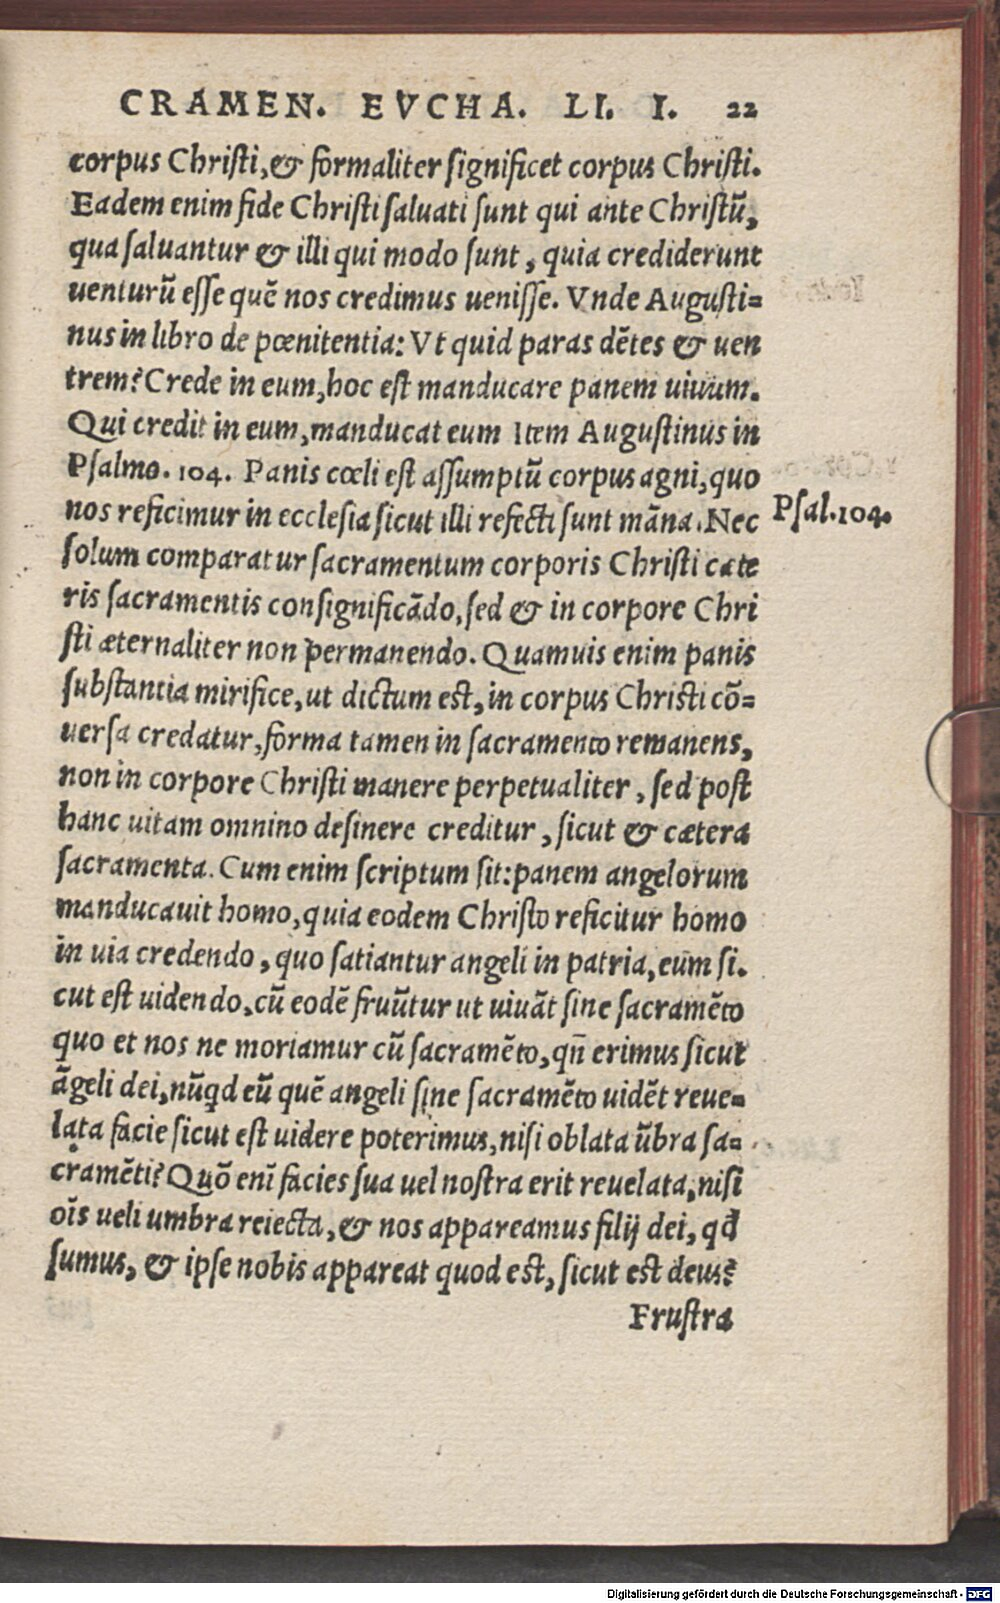 CRAMEN. EVCHA. LI. I. 22
corpus Christi, & formaliter significet corpus Christi.
Eadem enim fide Christi saluati sunt qui ante Christū,
qua saluantur & illi qui modo sunt, quia crediderunt
uenturū esse quē nos credimus uenisse. Vnde Augusti=
nus in libro de pœnitentia: Vt quid paras dētes & uen
trem? Crede in eum, hoc est manducare panem uiuum.
Qui credit in eum, manducat eum Item Augustinus in
Psalmo. 104. Panis cœli est assumptū corpus agni, quo
nos reficimur in ecclesia sicut illi refecti sunt māna. Nec
Psal. 104.
solum comparatur sacramentum corporis Christi cæte
ris sacramentis consignificādo, sed & in corpore Chri
sti æternaliter non permanendo. Quamuis enim panis
substantia mirifice, ut dictum est, in corpus Christi cō=
uersa credatur, forma tamen in sacramento remanens,
non in corpore Christi manere perpetualiter, sed post
hanc uitam omnino desinere creditur, sicut & cætera
sacramenta. Cum enim scriptum sit: panem angelorum
manducauit homo, quia eodem Christo reficitur homo
in uia credendo, quo satiantur angeli in patria, eūm si.
cut est uidendo, cū eodē fruūtur ut uiuāt sine sacramēto
quo et nos ne moriamur cū sacramēto, qn̄ erimus sicut
āgeli dei, nūqd eū quē angeli sine sacramēto uidēt reue=
lata facie sicut est uidere poterimus, nisi oblata ūbra sa=
cramēti? Quō enī facies sua uel nostra erit reuelata, nisi
oīs ueli umbra reiecta, & nos appareamus filij dei, qd
sumus, & ipse nobis appareat quod est, sicut est deus?
Frustra
Digitalisierung gefördert durch die Deutsche Forschungsgemeinschaft - DFG